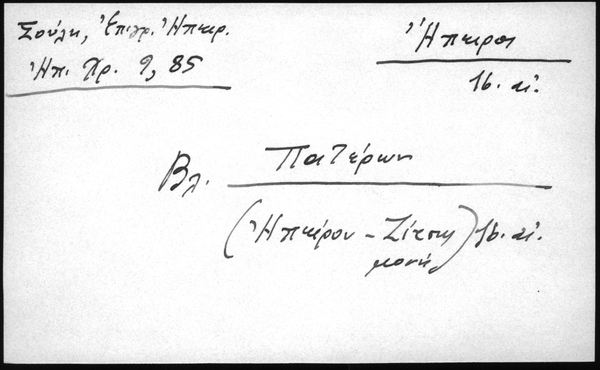 Σούλη, Ἐπιγρ. Ἠπειρ.
Ἠπ. Χρ. 9, 85
Ἤπειρος
16. αἰ.
Βλ. Πατέρων
(Ἠπείρου - Ζίτσης 16. αἰ.
μονή)